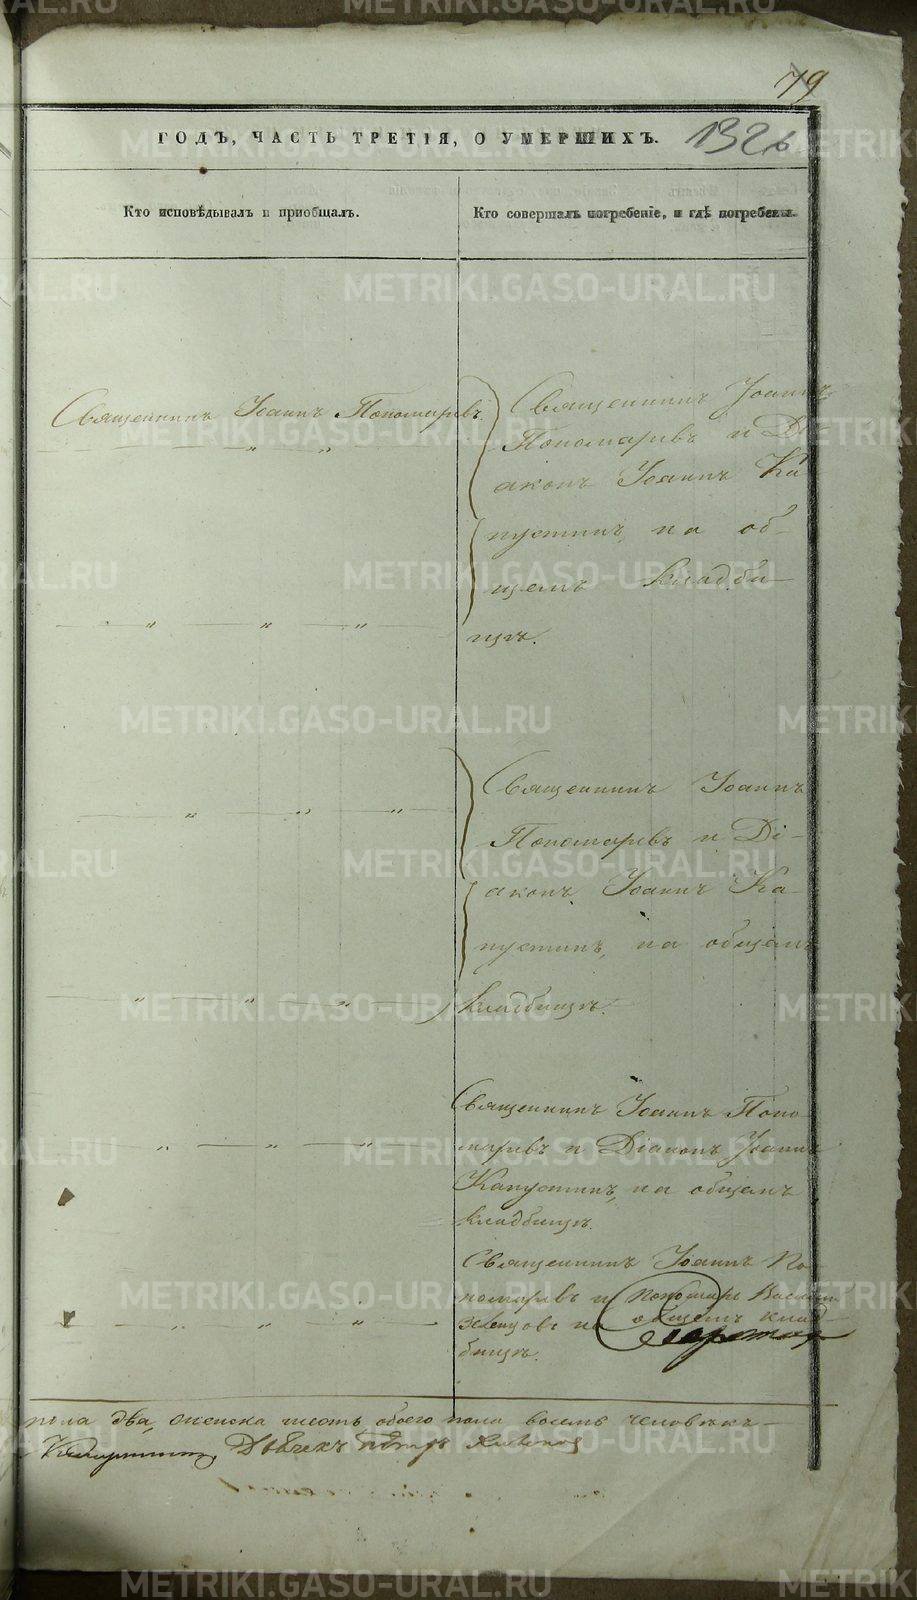 79
ГОДЪ, ЧАСТЬ ТРЕТІЯ, О УМЕРШИХЪ.
Кто исповѣдывалъ и приобщалъ.
Кто совершалъ погребеніе, и гдѣ погребены.
Священникъ Іоаннъ Пономаревъ
Священникъ Іоаннъ
Пономаревъ и Ді-
аконъ Іоаннъ Ка
пустинъ, на об-
щемъ кладби-
щѣ.
Священникъ Іоаннъ
Пономаревъ и Ді-
аконъ Іоаннъ Ка-
пустинъ, на общемъ
кладбищѣ.
Священникъ Іоаннъ Поно-
маревъ и Діаконъ Іоаннъ
Капустинъ, на общемъ
кладбищѣ.
Священникъ Іоаннъ По-
номаревъ и Пономарь
на общемъ клад-
бищѣ.
пола два, женска шесть обоего пола восемь человѣкъ
Капустинъ, Дьячекъ Петръ
METRIKI.GASO-URAL.RU